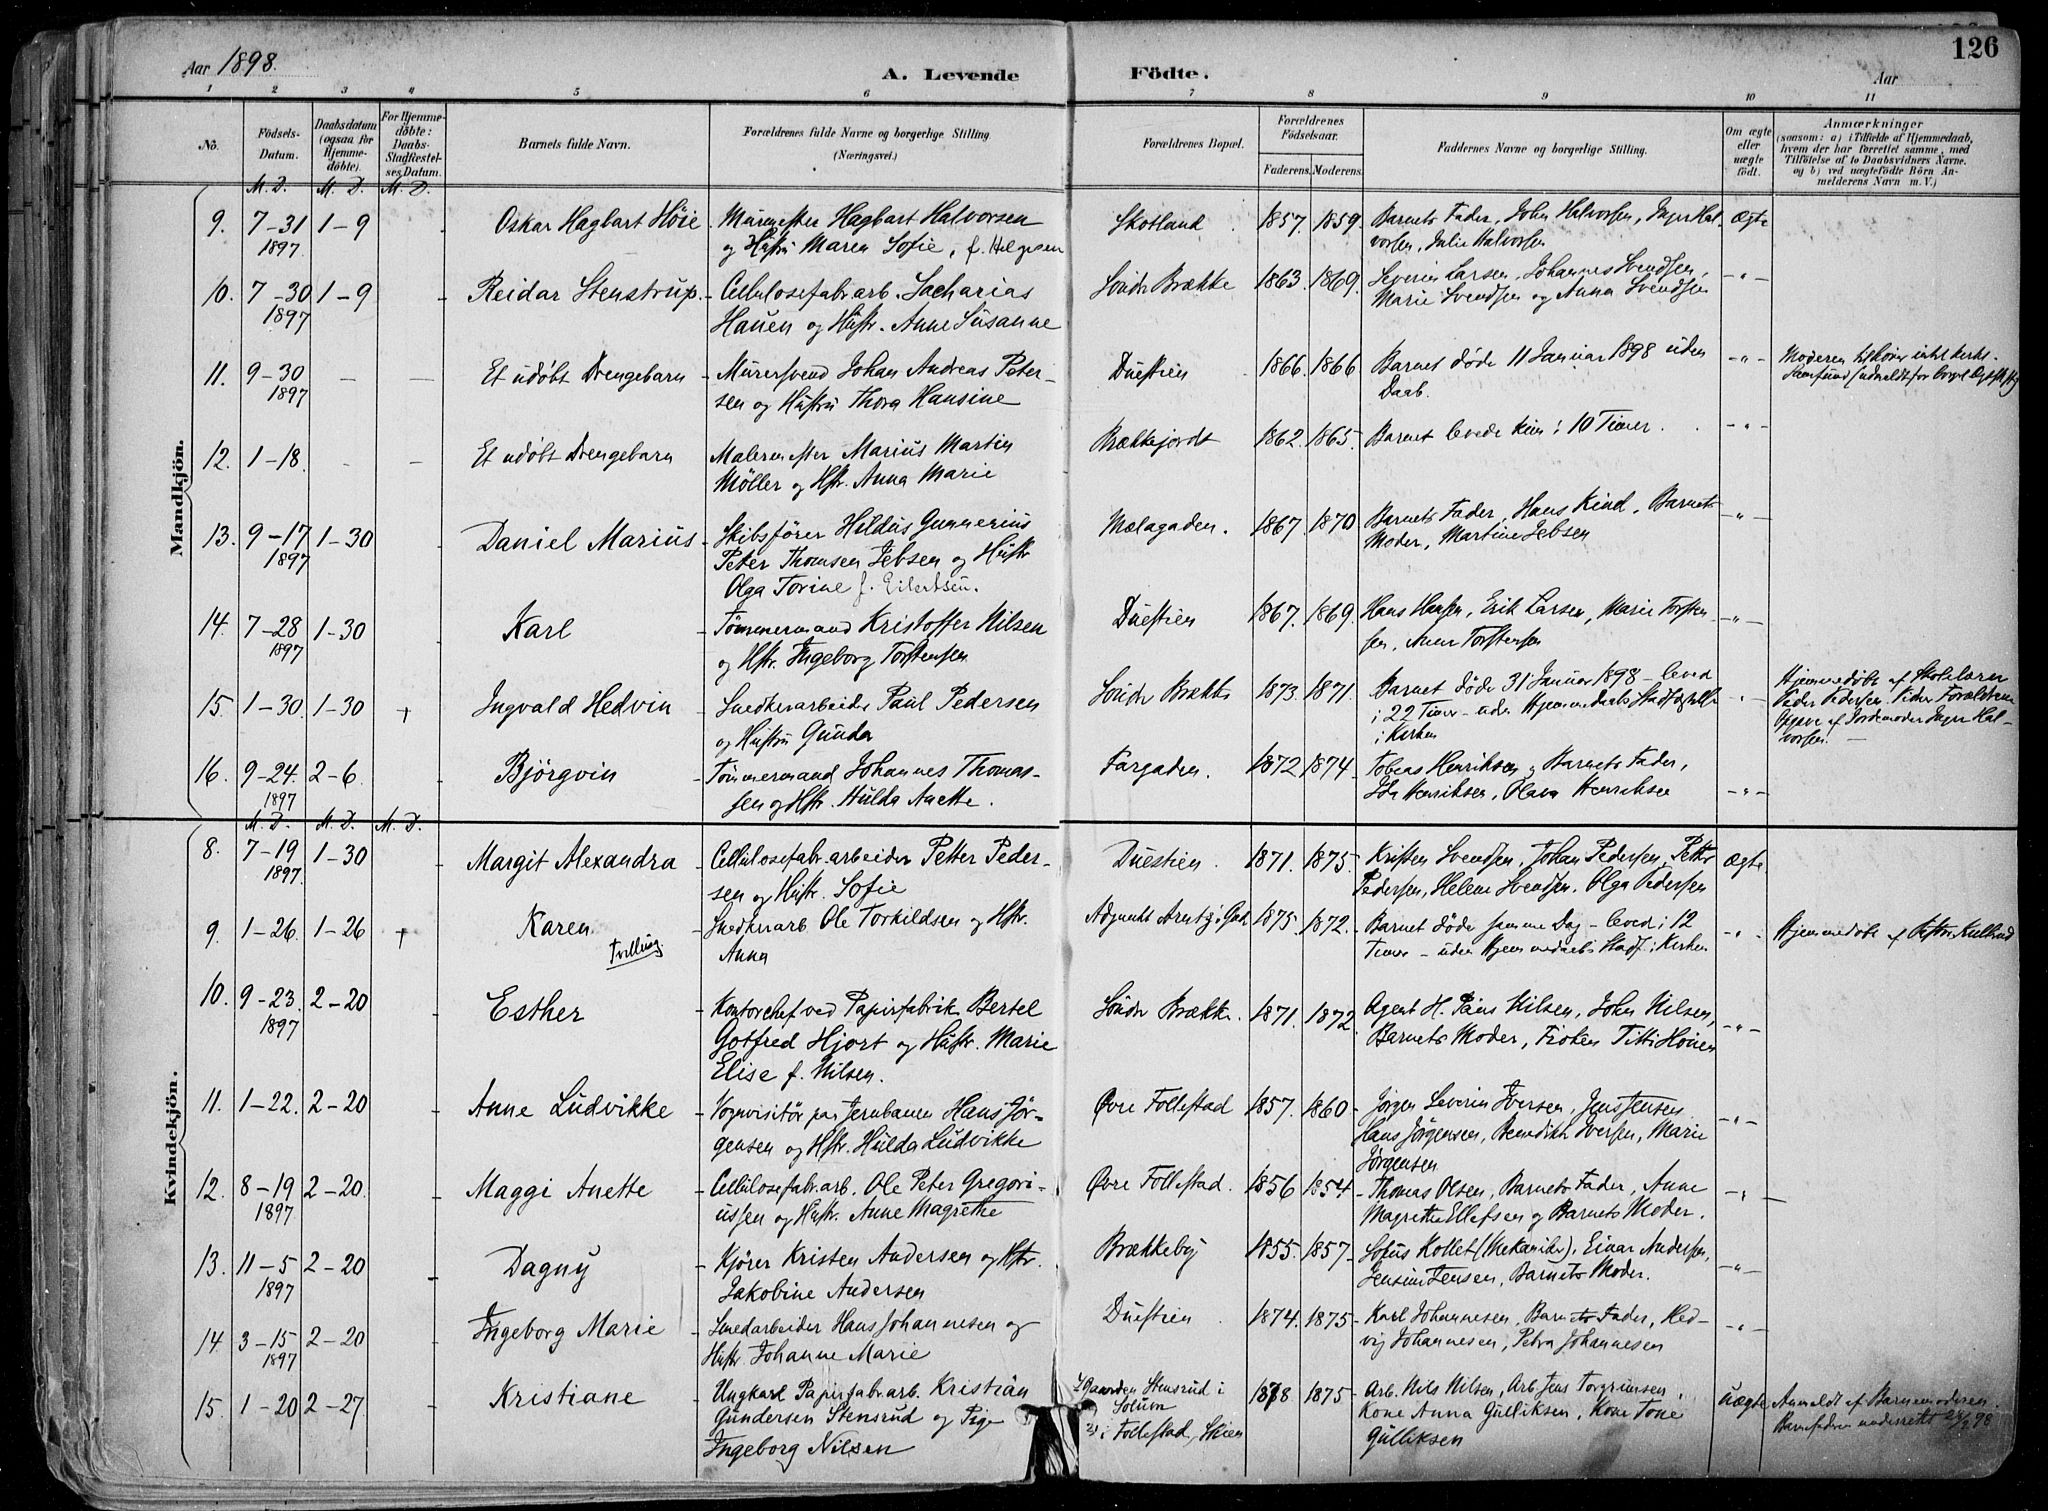 126
Aar 1898.
A. Levende Födte.
Aar
1 2 3 4 5 6 7 8 9 10 11
No.
Födsels-Datum.
Daabsdatum (ogsaa for Hjemmedöbte).
For Hjemmedöbte: Daabs-Stadfæstelses Datum.
Barnets fulde Navn.
Forældrenes fulde Navne og borgerlige Stilling.
(Næringsvei.)
Forældrenes Bopæl.
Forældrenes Födselsaar.
Faderens. Moderens.
Faddernes Navne og borgerlige Stilling.
Om ægte eller uægte födt.
Anmærkninger
(saasom: a) i Tilfælde af Hjemmedaab,
hvem der har forrettet samme, med
Tilföielse af to Daabsvidners Navne.
og b) ved uægtefödte Börn Anmelderens Navn m. V.)
Mandkjön.
M. D. M. D. M. D.
9. 7-31 1897 1-9 - Oskar Hagbart Höie
Murmester Hagbart Halvorsen
og Hustru Maren Sofie, f. Helgesen
Skotland 1857. 1859.
Barnets Fader, John Halvorsen, Inger Hal-
vorsen, Julie Halvorsen
Ægte
10. 7-30 1897 1-9 - Reidar Stenstrup.
Cellulosefabr.arb. Sacharias
Hauen og Hustr. Anne Susanne
Söndr Brække 1863. 1869.
Severin Larsen, Johannes Svendsen,
Marie Svendsen og Anna Svendsen
-"-
11. 9-30 1897 - - Et udøbt Drengebarn
Murersvend Johan Andreas Peter-
sen og Hustru Thora Hansine
Duestien 1866. 1866
Barnet døde 11 Januar 1898 uden
Daab.
-"-
Moderen tilhører intet kirke-
12. 1-18. - - Et udøbt Drengebarn
Malermester Marius Martin
Möller og Hstr. Anna Marie
Brækkejordt 1862. 1865.
Barnet levede kun i 10 Timer.
-"-
13. 9-17 1897 1-30 - Daniel Marius
Skibsfører Hildus Gunnerius
Peter Thomsen Jebsen og Hustr
Olga Torine f. Eilertsen.
Mælagaden. 1867. 1870
Barnets Fader, Hans Kind, Barnets
Moder, Martine Jebsen
-"-
14. 7-28 1897 1-30 - Karl
Tømmermand Kristoffer Nilsen
og Hstr. Ingeborg Torstensen
Duestien 1867. 1869.
Hans Hansen, Erik Larsen, Marie Torsten-
sen, Anne Torstensen
-"-
15. 1-30. 1-30 + Ingvald Hedvin
Snedkerarbeider Paul Pedersen
og Hustru Gunda
Söndr Brække 1873. 1871.
Barnet døde 31 Januar 1898 - leved
i 22 Timer - uden Hjemmedaabs Stadfæstelse
i Kirken
-"-
Hjemmedøbt af Skolelærer
Peder Pedersen. Uden Forældrenes
Opgave af Jordemoder Inger Hal-
vorsen.
16. 9-24. 1897 2-6. - Bjørgvin
Tømmermand Johannes Thomas-
sen og Hstr. Hulda Anette.
Fargaden. 1872 1874
Tobias Henriksen og Barnets Fader,
Ida Henriksen, Olava Henriksen
-"-
Kvindekjön.
M. D. M. D. M. D.
8. 7-19 1897. 1-30 - Margit Alexandra
Cellulosefabr.arbeider Petter Peder-
sen og Hustr. Sofie
Duestien. 1871. 1875.
Kristen Svendsen, Johan Pedersen, Petter
Pedersen, Helene Svendsen, Olga Pedersen
Ægte
9. 1-26. 1-26 + Karen
Tvilling
Snedkerarb Ole Torkildsen og Hstr.
Anna
1875. 1872.
Barnet døde samme Dag - leved i 12
Timer - uden Hjemmedaabs Stadf. i Kirken
-"-
Hjemmedøbt af
10. 9-23. 1897 2-20 - Esther
Kontorchef ved Papirfabrik Bertel
Gotfred Hjort og Hustr. Marie
Elise f. Nilsen.
Söndr Brække. 1871. 1872
Agent H. Paus Nilsen, John Nilsen,
Barnets Moder, Frøken Titti Houen
-"-
11. 1-22. 2-20 - Anne Ludvikke
Vognvisitør paa Jernbanen Hans Jör-
gensen og Hstr. Hulda Ludvikke
Øvre Follestad 1857. 1860
Jörgen Severin Iversen, Jens Jensen,
Hans Jörgensen, Benedikte Iversen, Marie
Jörgensen
-"-
12. 8-19 1897 2-20. - Maggi Anette
Cellulosefabr.arb. Ole Peter Gregori-
ussen og Hustr. Anne Magrethe
Øvre Follestad. 1856 1854
Thomas Olsen, Barnets Fader, Anne
Magrethe Ellefsen og Barnets Moder.
-"-
13. 11-5 1897 2-20 - Dagny
Kjører Kristen Andersen og Hstr.
Jakobine Andersen
Brækkeby 1855. 1857
Sofus Kollet (Mekaniker), Einar Andersen,
Jensine Jensen, Barnets Moder.
-"-
14 3-15 1897 2-20 - Ingeborg Marie
Smedarbeider Hans Johannesen og
Hustr. Johanne Marie
Duestien 1874. 1875
Karl Johannesen, Barnets Fader, Hed-
vig Johannesen, Petra Johannesen
-"-
15. 1-20 2-27. - Kristiane
Ungkarl Papirfabr.arb. Kristian
Gundersen Stensrud og Pige
Ingeborg Nilsen
1 Gaarden Stensrud i
Solum
2) i Follestad, Skien
1878 1875
Arb. Nils Nilsen, Arb. Jens Torgrimsen,
Kone Anna Gulliksen, Kone Tone
Gulliksen
uægte
Anmeldt af Barnemoderen.
Barnefaderen underrettet 28/2 98